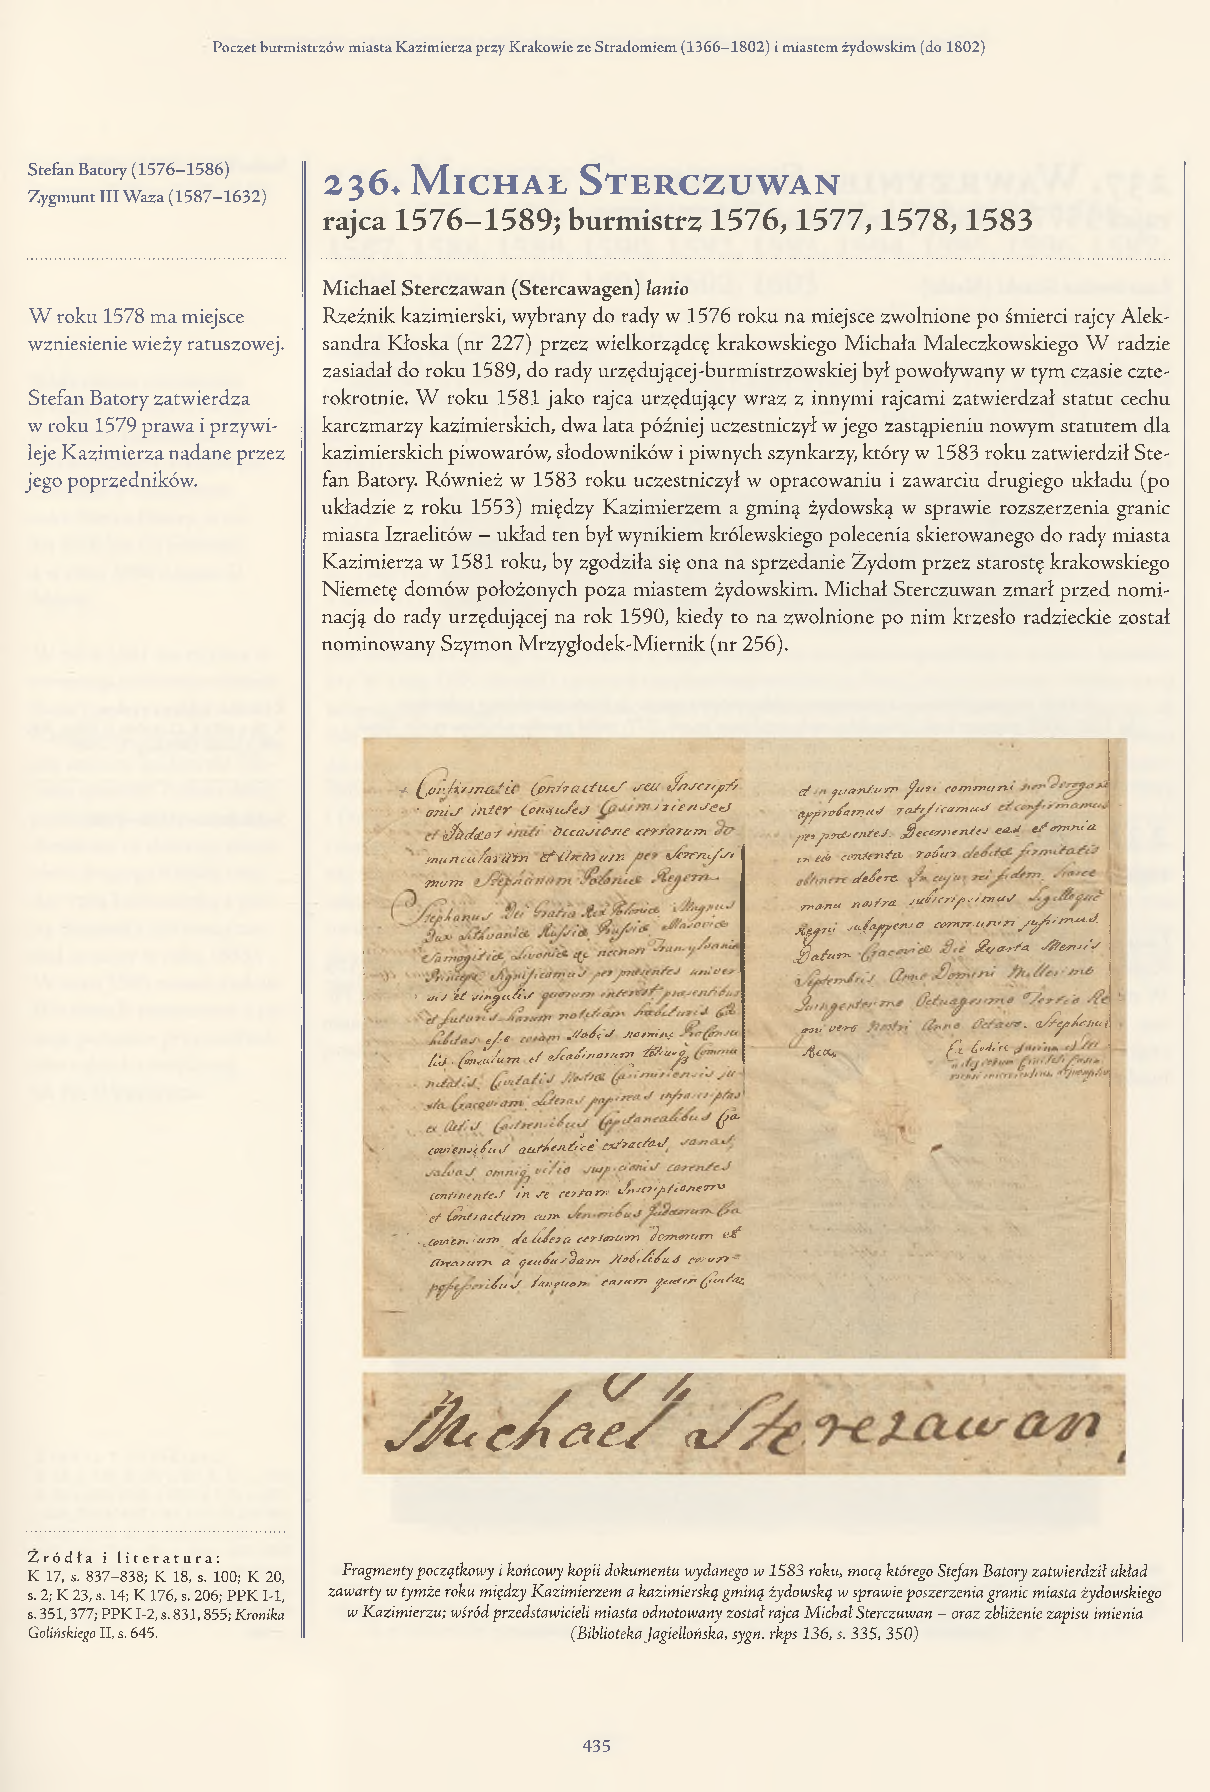 Poczet burmistrzów miasta Kazimierza przy Krakowie ze Stradomiem (1366–1802) i miastem żydowskim (do 1802)
Stefan Batory (1576–1586)
Zygmunt III Waza (1587–1632)
W roku 1578 ma miejsce
wzniesienie wieży ratuszowej.
Stefan Batory zatwierdza
w roku 1579 prawa i przywi-
leje Kazimierza nadane przez
jego poprzedników.
236. Michał Sterczuwan
rajca 1576–1589; burmistrz 1576, 1577, 1578, 1583
Michael Sterczawan (Stercawagen) lanio
Rzeźnik kazimierski, wybrany do rady w 1576 roku na miejsce zwolnione po śmierci rajcy Alek-
sandra Kłoska (nr 227) przez wielkorządcę krakowskiego Michała Maleczkowskiego W radzie
zasiadał do roku 1589, do rady urzędującej-burmistrzowskiej był powoływany w tym czasie czte-
rokrotnie. W roku 1581 jako rajca urzędujący wraz z innymi rajcami zatwierdzał statut cechu
karczmarzy kazimierskich, dwa lata później uczestniczył w jego zastąpieniu nowym statutem dla
kazimierskich piwowarów, słodowników i piwnych szynkarzy, który w 1583 roku zatwierdził Ste-
fan Batory. Również w 1583 roku uczestniczył w opracowaniu i zawarciu drugiego układu (po
układzie z roku 1553) między Kazimierzem a gminą żydowską w sprawie rozszerzenia granic
miasta Izraelitów – układ ten był wynikiem królewskiego polecenia skierowanego do rady miasta
Kazimierza w 1581 roku, by zgodziła się ona na sprzedanie Żydom przez starostę krakowskiego
Niemetę domów położonych poza miastem żydowskim. Michał Sterczuwan zmarł przed nomi-
nacją do rady urzędującej na rok 1590, kiedy to na zwolnione po nim krzesło radzieckie został
nominowany Szymon Mrzygłodek-Miernik (nr 256).
Confirmatio Contractus seu Inscripti
onis inter Consules Casimirienses
et Judæos initi occasione certarum do
muncularum et Arearum per Serenissi
mum Stephanum Poloniæ Regem
Stephanus Dei Gratia Rex Poloniæ Magnus
Dux Lithvaniæ Russiæ Prussiæ Masoviæ
Samogitiæ, Livoniæ ac necnon Transylvaniæ
Princeps Significamus per præsentes univer
sis et singulis quorum interest præsentibus
et futuris harum notitiam habituris Ex
hibitas esse coram Nobis nomine Proconsu
lis Consulum et Scabinorum totiusq Commu
nitatis Civitatis Nostræ Casimiriensis ju
xta Cracoviam Literas papireas infrascriptas
ex Actis Castrensibus Capitanealibus Cra
coviensibus authentice extractas, sanas,
salvas omniq vitio suspicionis carentes
continentes in se certam Inscriptionem
et Contractum cum Senioribus Judæorum Cra
coviensium de libera certarum domorum et
Arearum a quibusdam Nobilibus earum
possessoribus tanquam earum
et in quantum Juri communi non derogant
approbamus ratificamus et confirmamus
per præsentes. Decernentes eas et omnia
in eis contenta robur debitæ firmitatis
obtinere debere. In cujus rei fidem
manu nostra subscripsimus Sigillumque
Regni subappenso communiri jussimus.
Datum Cracoviæ Die Quarta Mensis
Septembris Anno Domini Millesimo
Quingentesimo Octuagesimo Tertio Re
gni vero Nostri Anno Octavo. Stephanus
Rex.
Michael Sterczawan
Źródła i literatura:
K 17, s. 837–838; K 18, s. 100; K 20,
s. 2; K 23, s. 14; K 176, s. 206; PPK I-1,
s. 351, 377; PPK I-2, s. 831, 855; Kronika
Golińskiego II, s. 645.
Fragmenty początkowy i końcowy kopii dokumentu wydanego w 1583 roku, mocą którego Stefan Batory zatwierdził układ
zawarty w tymże roku między Kazimierzem a kazimierską gminą żydowską w sprawie poszerzenia granic miasta żydowskiego
w Kazimierzu; wśród przedstawicieli miasta odnotowany został rajca Michał Sterczuwan – oraz zbliżenie zapisu imienia
(Biblioteka Jagiellońska, sygn. rkps 136, s. 335, 350)
435